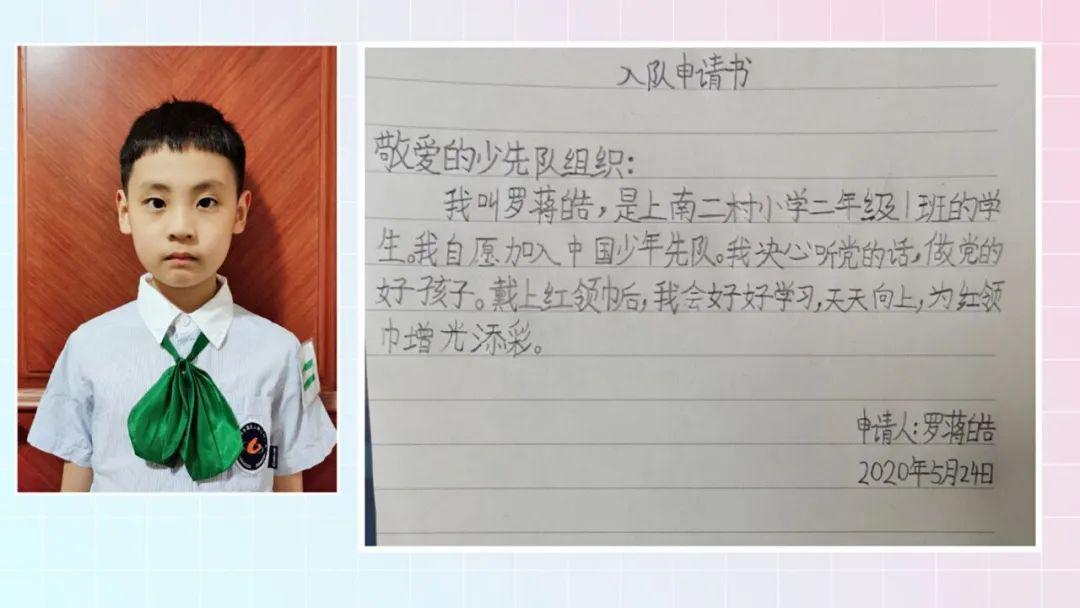 入队申请书
敬爱的少先队组织：
我叫罗蒋皓，是上南二村小学二年级1班的学
生。我自愿加入中国少年先队。我决心听党的话，做党的
好孩子。戴上红领巾后，我会好好学习，天天向上，为红领
巾增光添彩。
申请人：罗蒋皓
2020年5月24日